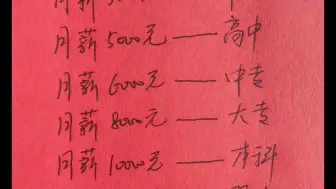 月薪5000元——高中
月薪6000元——中专
月薪8000元——大专
月薪10000元——本科